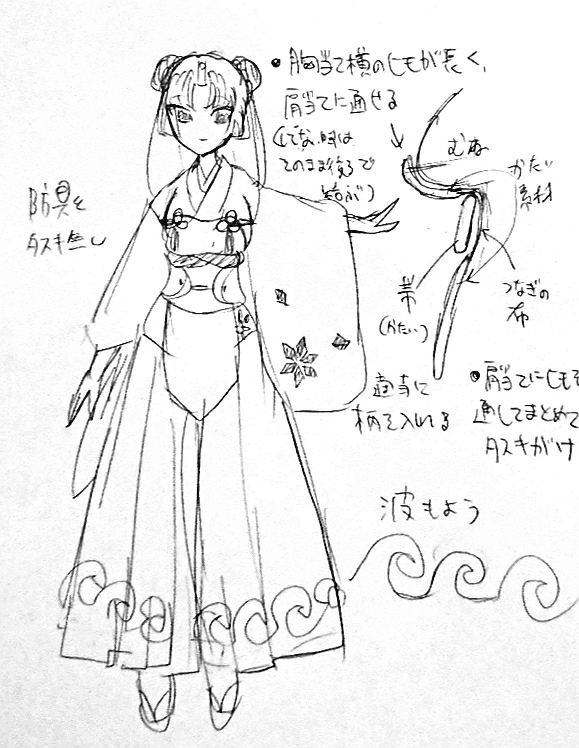 ●胸当て横のヒモが長く、
肩当てに通せる
(してない時は
そのまま後ろで
結ぶ)
むね
かたい
素材
防具と
タスキ無し
帯
(かたい)
つなぎの
布
適当に
柄を入れる
●肩当てにヒモを
通してまとめて
タスキがけ
波もよう